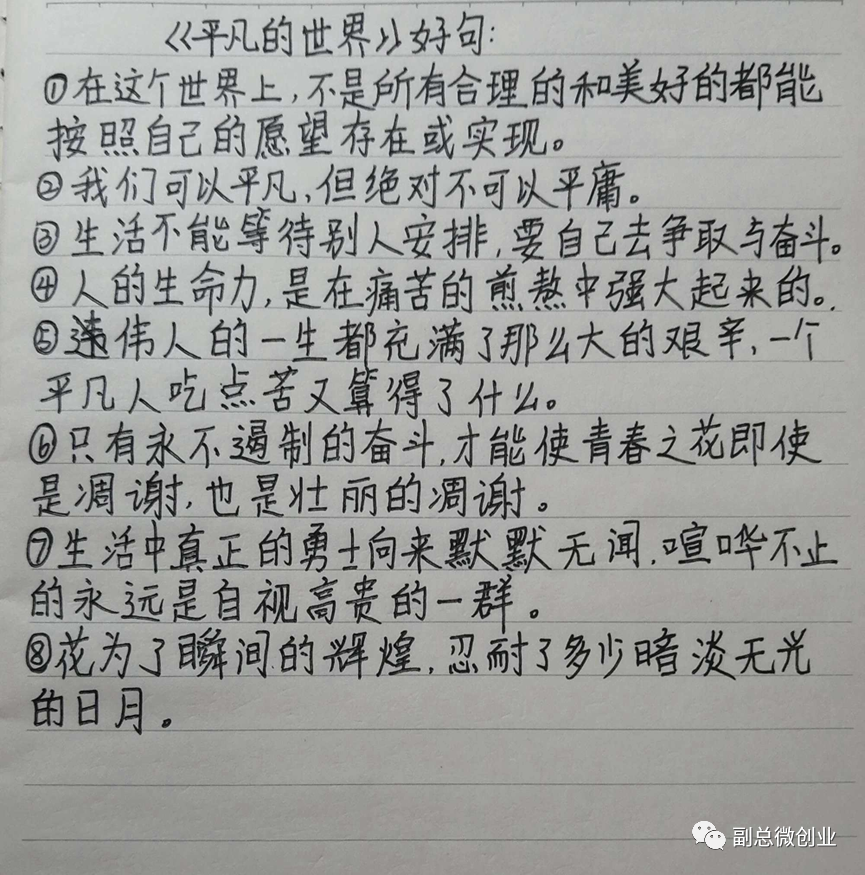 《平凡的世界》好句:
①在这个世界上,不是所有合理的和美好的都能
按照自己的愿望存在或实现。
②我们可以平凡,但绝对不可以平庸。
③生活不能等待别人安排,要自己去争取与奋斗。
④人的生命力,是在痛苦的煎熬中强大起来的。
⑤伟人的一生都充满了那么大的艰辛,一个
平凡人吃点苦又算得了什么。
⑥只有永不遏制的奋斗,才能使青春之花即使
是凋谢,也是壮丽的凋谢。
⑦生活中真正的勇士向来默默无闻,喧哗不止
的永远是自视高贵的一群。
⑧花为了瞬间的辉煌,忍耐了多少暗淡无光
的日月。
副总微创业